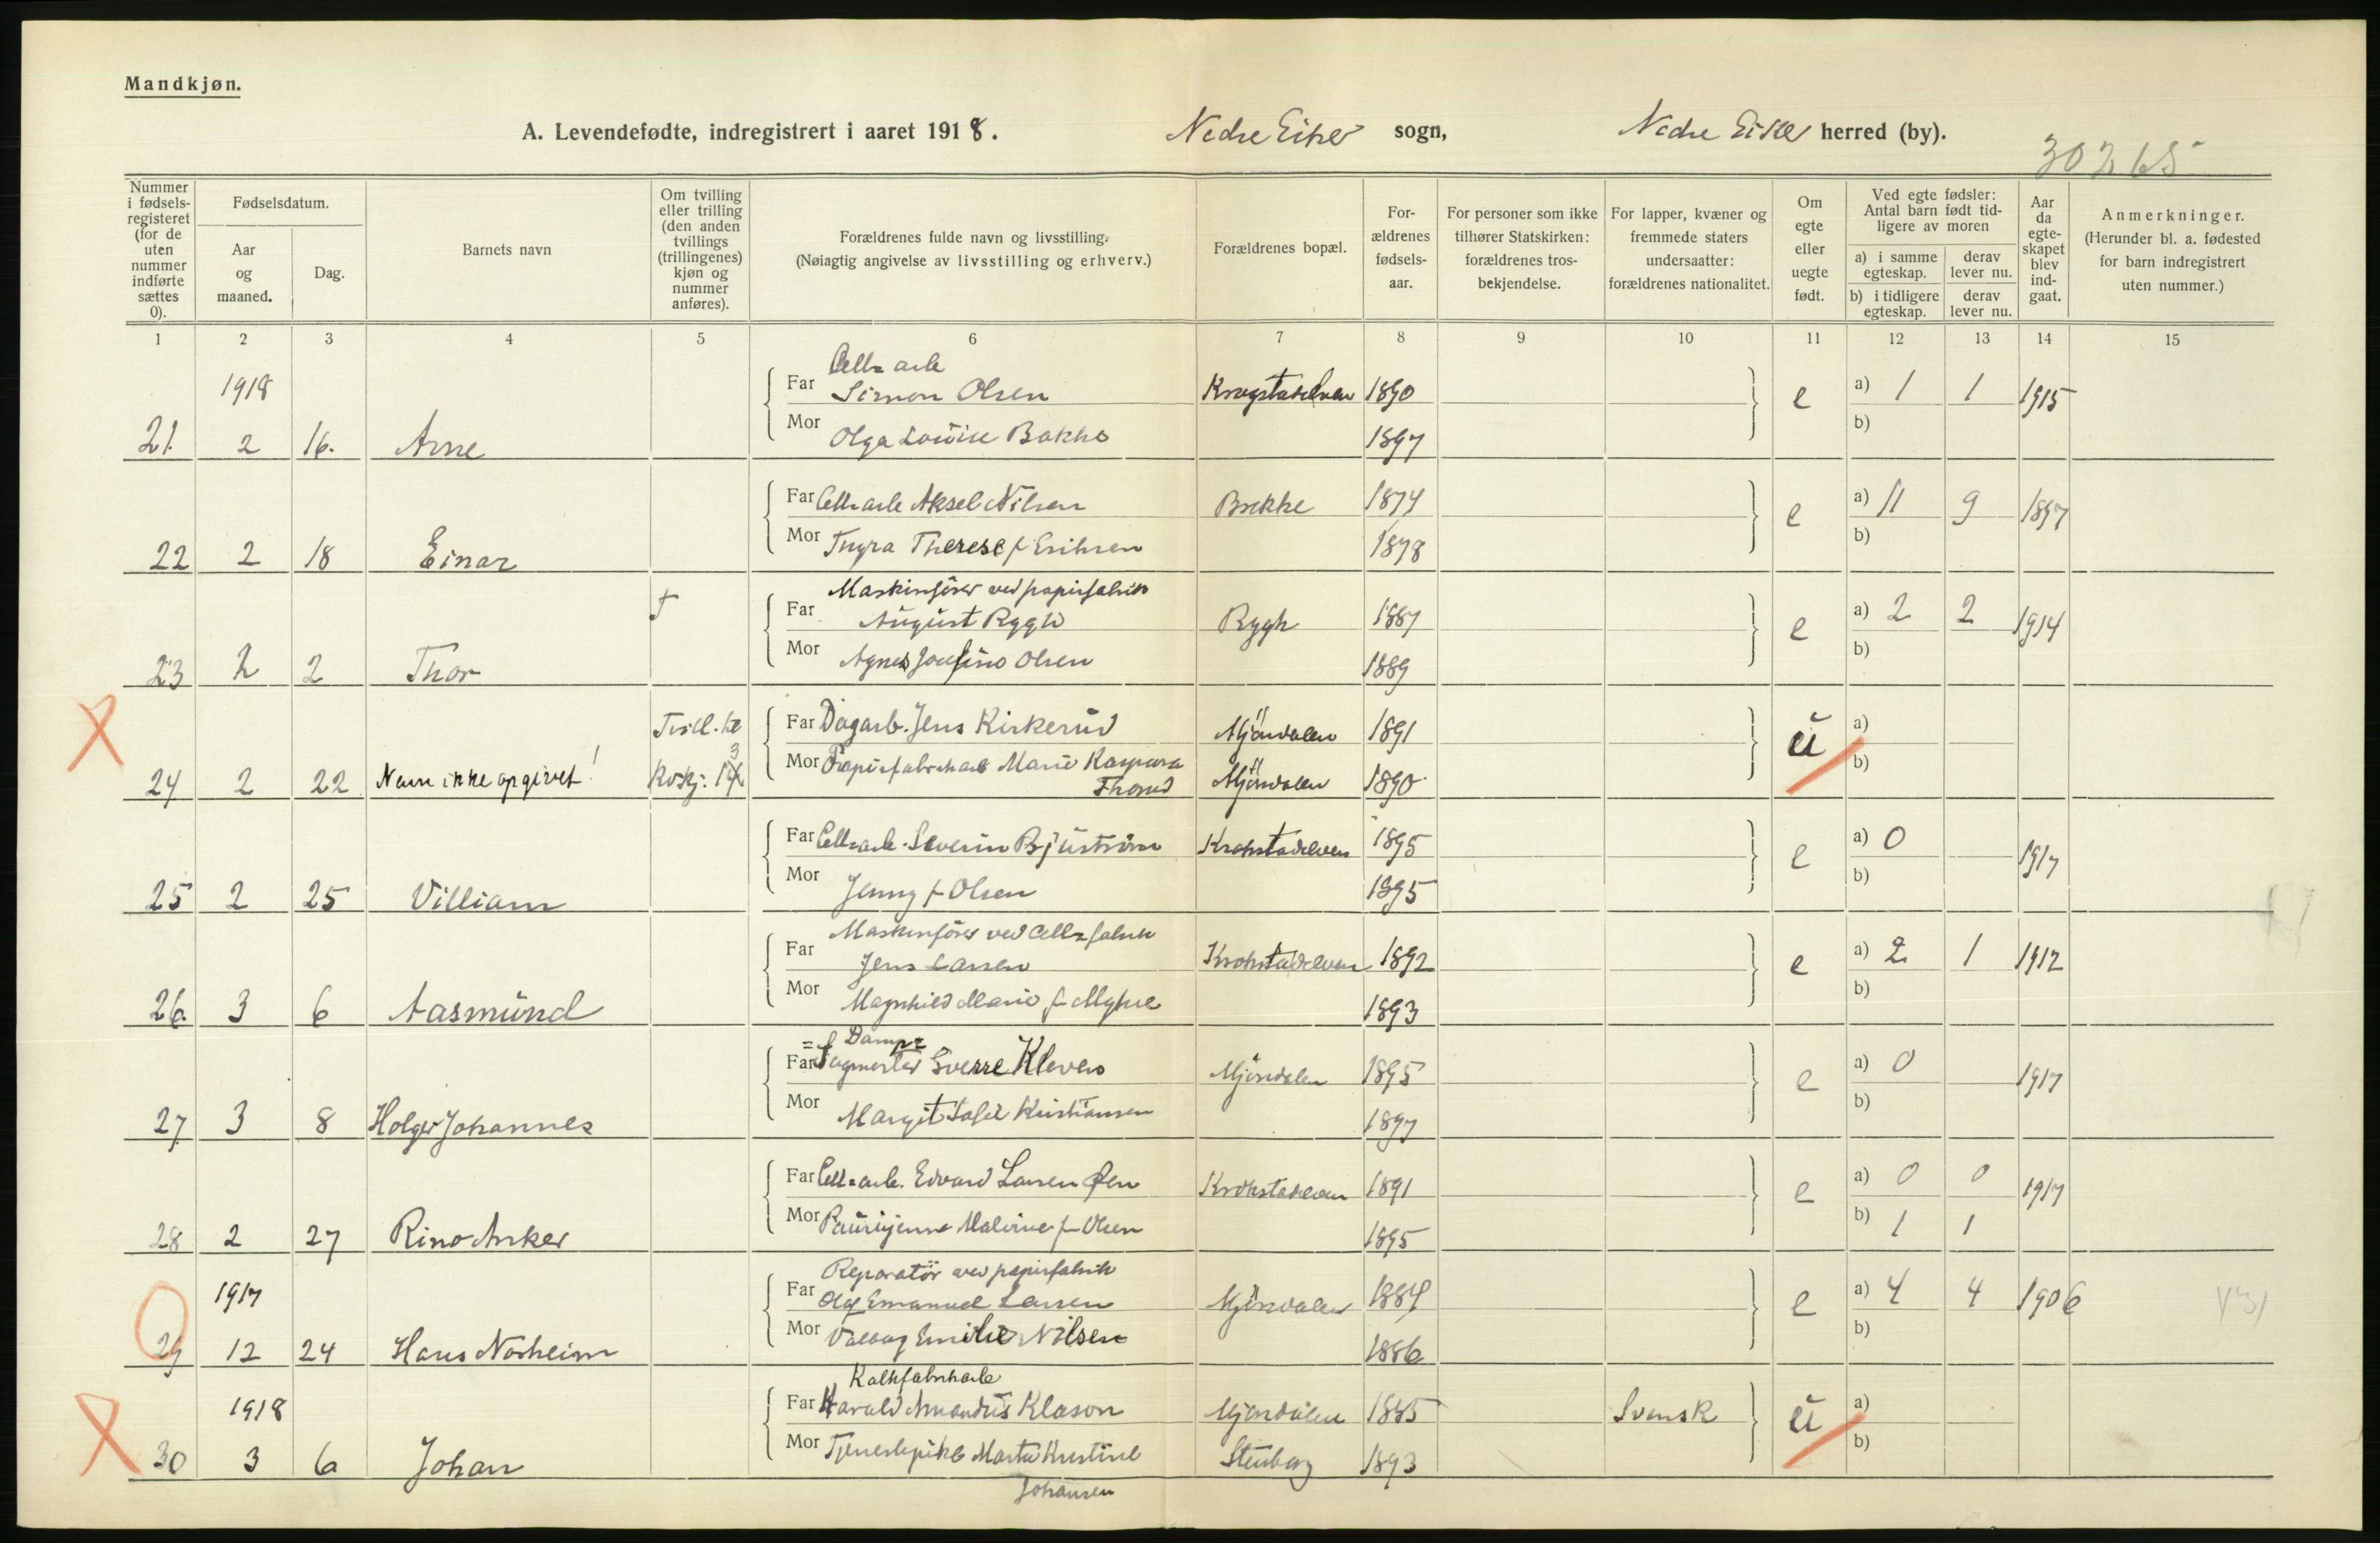 Mandkjøn.
A. Levendefødte, indregistrert i aaret 1918. Nedre Eiker sogn, Nedre Eiker herred (by).
30265
Nummer i fødselsregisteret (for de uten nummer indførte sættes 0).
Fødselsdatum.
Aar og maaned.
Dag.
Barnets navn
Om tvilling eller trilling (den anden tvillings (trillingenes) kjøn og nummer anføres).
Forældrenes fulde navn og livsstilling.
(Nøiagtig angivelse av livsstilling og erhverv.)
Forældrenes bopæl.
Forældrenes fødselsaar.
For personer som ikke tilhører Statskirken: forældrenes trosbekjendelse.
For lapper, kvæner og fremmede staters undersaatter: forældrenes nationalitet.
Om egte eller uegte født.
Ved egte fødsler: Antal barn født tidligere av moren
a) i samme egteskap.
derav lever nu.
b) i tidligere egteskap.
derav lever nu.
Aar da egteskapet blev indgaat.
Anmerkninger.
(Herunder bl. a. fødested for barn indregistrert uten nummer.)
1 2 3 4 5 6 7 8 9 10 11 12 13 14 15
1918 Cell= arb
Far Simon Olsen Krogstadelven 1890 e a) 1 1 1915
Mor Olga Lovise Bakke 1897 b)
21. 2 16. Arne
Far Cell=arb Aksel Nilsen Brekke 1874 e a) 11 9 1897
Mor Thyra Therese f Eriksen 1878 b)
22 2 18 Einar
Maskinfører ved papirfabrik
Far August Rygh Rygh 1887 e a) 2 2 1914
Mor Agnes Josefine Olsen 1889 b)
23 2 2 Thor
Tvill. kl
Far Dagarb. Jens Kirkerud Mjöndalen 1891 u a)
Mor Papirfabrikarb Marie Kaspara Mjöndalen 1890 b)
24 2 22 Navn ikke opgivet! Kvkj:
Far Cell=arb. Severin Bjuström Krokstadelven 1895 e a) 0 1917
Mor Jenny f Olsen 1895 b)
25 2 25 Villiam
Maskinfører ved Cell=fabrik
Far Jens Larsen Krokstadelven 1892 e a) 2 1 1912
Mor Magnhild Marie f Myhre 1893 b)
26. 3 6 Aasmund
Damp=
Far Sagmester Sverre Kleven Mjöndalen 1895 e a) 0 1917
Mor Margit Sofie Kristiansen 1897 b)
27 3 8 Holger Johannes
Far Cell=arb. Edvard Larsen Øen Krokstadelven 1891 e a) 0 0 1917
Mor Malvine f Olsen 1895 b) 1 1
28 2 27 Rino Anker
1917 Reparatör ved papirfabrik
Far Olaf Emanuel Larsen Mjöndalen 1884 e a) 4 4 1906
Mor Valborg Emilie Nilsen 1886 b)
29 12 24 Hans Norheim
1918 Kalkfabrikarb
Far Harald Amandus Klason Mjöndalen 1885 Svensk u a)
Mor Tjenestepike Marta Kristine Stenberg 1893 b)
30 3 6 Johan
Johansen